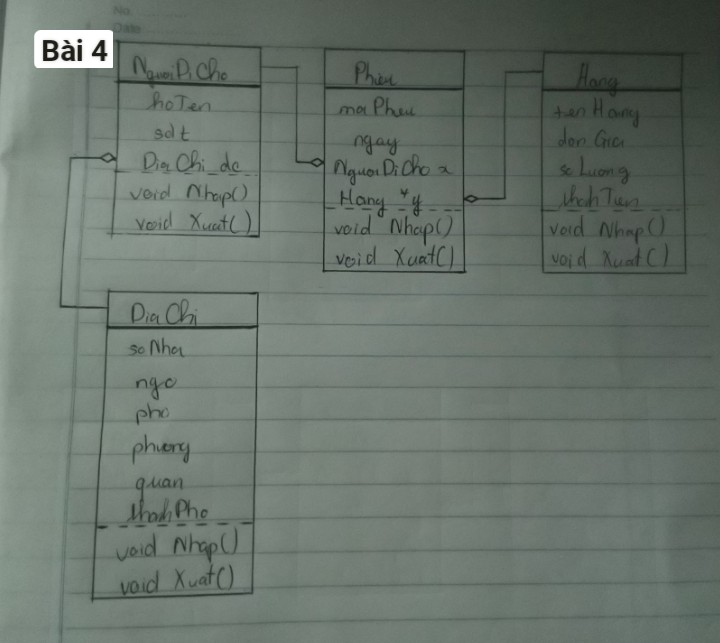 No.
Date
Bài 4
NguoiDiCho
hoTen
sdt
DiaChi dc
void Nhap()
void Xuat()
Phieu
maPhieu
ngay
NguoiDiCho x
Hang *y
void Nhap()
void Xuat()
Hang
tenHang
donGia
soLuong
thanhTien
void Nhap()
void Xuat()
DiaChi
soNha
ngo
pho
phuong
quan
thanhPho
void Nhap()
void Xuat()